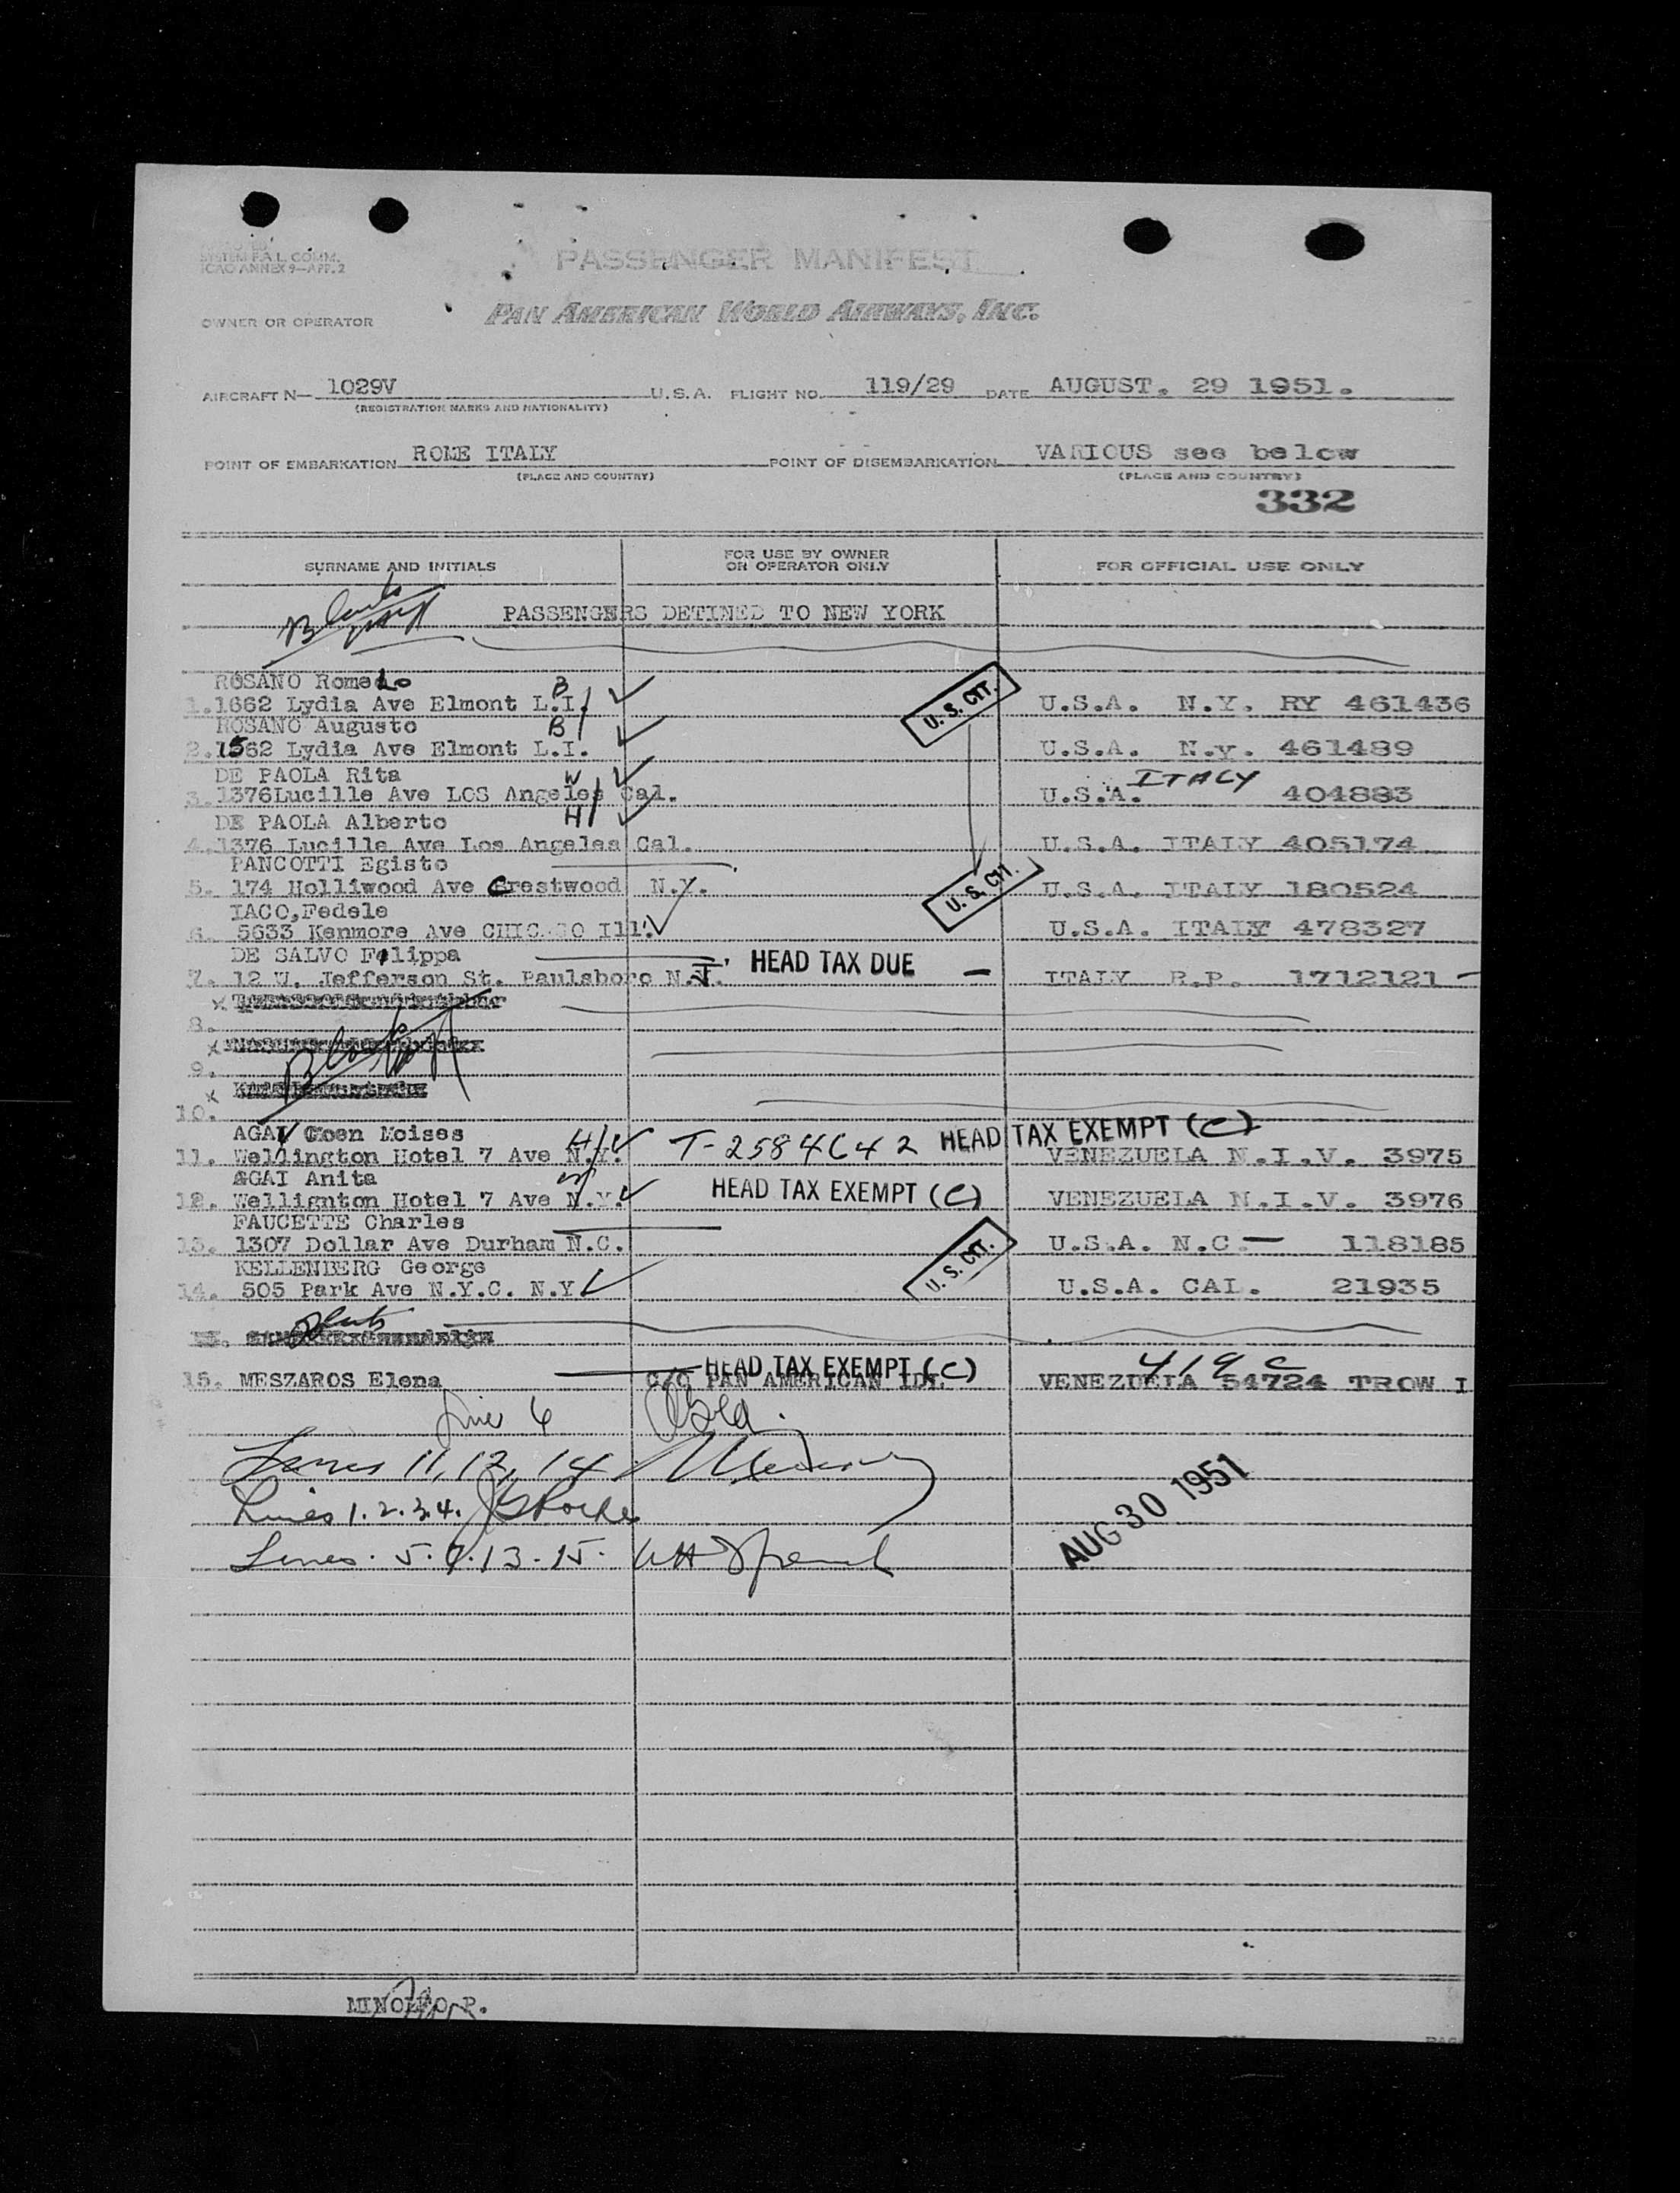 SYSTEM F.A.L. COMM.
ICAO ANNEX 9—APP. 2
PASSENGER MANIFEST
OWNER OR OPERATOR
PAN AMERICAN WORLD AIRWAYS, INC.
AIRCRAFT N— 1029V U.S.A. FLIGHT NO. 119/29 DATE AUGUST. 29 1951.
(REGISTRATION MARKS AND NATIONALITY)
POINT OF EMBARKATION ROME ITALY POINT OF DISEMBARKATION VARIOUS see below
(PLACE AND COUNTRY) (PLACE AND COUNTRY)
332
SURNAME AND INITIALS FOR USE BY OWNER OR OPERATOR ONLY FOR OFFICIAL USE ONLY
PASSENGERS DETINED TO NEW YORK
ROSANO Romeo B
1. 1662 Lydia Ave Elmont L.I. U.S. CIT. U.S.A. N.Y. RY 461436
ROSANO Augusto B
2. 1562 Lydia Ave Elmont L.I. U.S.A. N.y. 461489
DE PAOLA Rita W ITALY
3. 1376Lucille Ave LOS Angeles Cal. U.S.A. 404883
DE PAOLA Alberto H
4. 1376 Lucille Ave Los Angeles Cal. U.S.A. ITALY 405174
PANCOTTI Egisto
5. 174 Holliwood Ave Crestwood N.Y. U.S. CIT. U.S.A. ITALY 180524
IACO, Fedele
6. 5633 Kenmore Ave CHICAGO Ill. U.S.A. ITALY 478327
DE SALVO Filippa
7. 12 W. Jefferson St. Paulsboro N.J. HEAD TAX DUE — ITALY R.P. 1712121 —
8.
9.
10.
AGAI Coen Moises H
11. Wellington Hotel 7 Ave N.Y. T-2584642 HEAD TAX EXEMPT (C) VENEZUELA N.I.V. 3975
AGAI Anita W
12. Wellignton Hotel 7 Ave N.Y. HEAD TAX EXEMPT (C) VENEZUELA N.I.V. 3976
FAUCETTE Charles
13. 1307 Dollar Ave Durham N.C. U.S.A. N.C — 118185
KELLENBERG George
14. 505 Park Ave N.Y.C. N.Y U.S. CIT. U.S.A. CAL. 21935
HEAD TAX EXEMPT (C) 419 C
15. MESZAROS Elena C/O PAN AMERICAN IDL VENEZUELA 54724 TROW I
Line 6
Lines 11, 12, 14
Lines 1. 2. 3. 4.
Lines. 5. 7. 13 - 15.
AUG 30 1951
MINOLFO P.